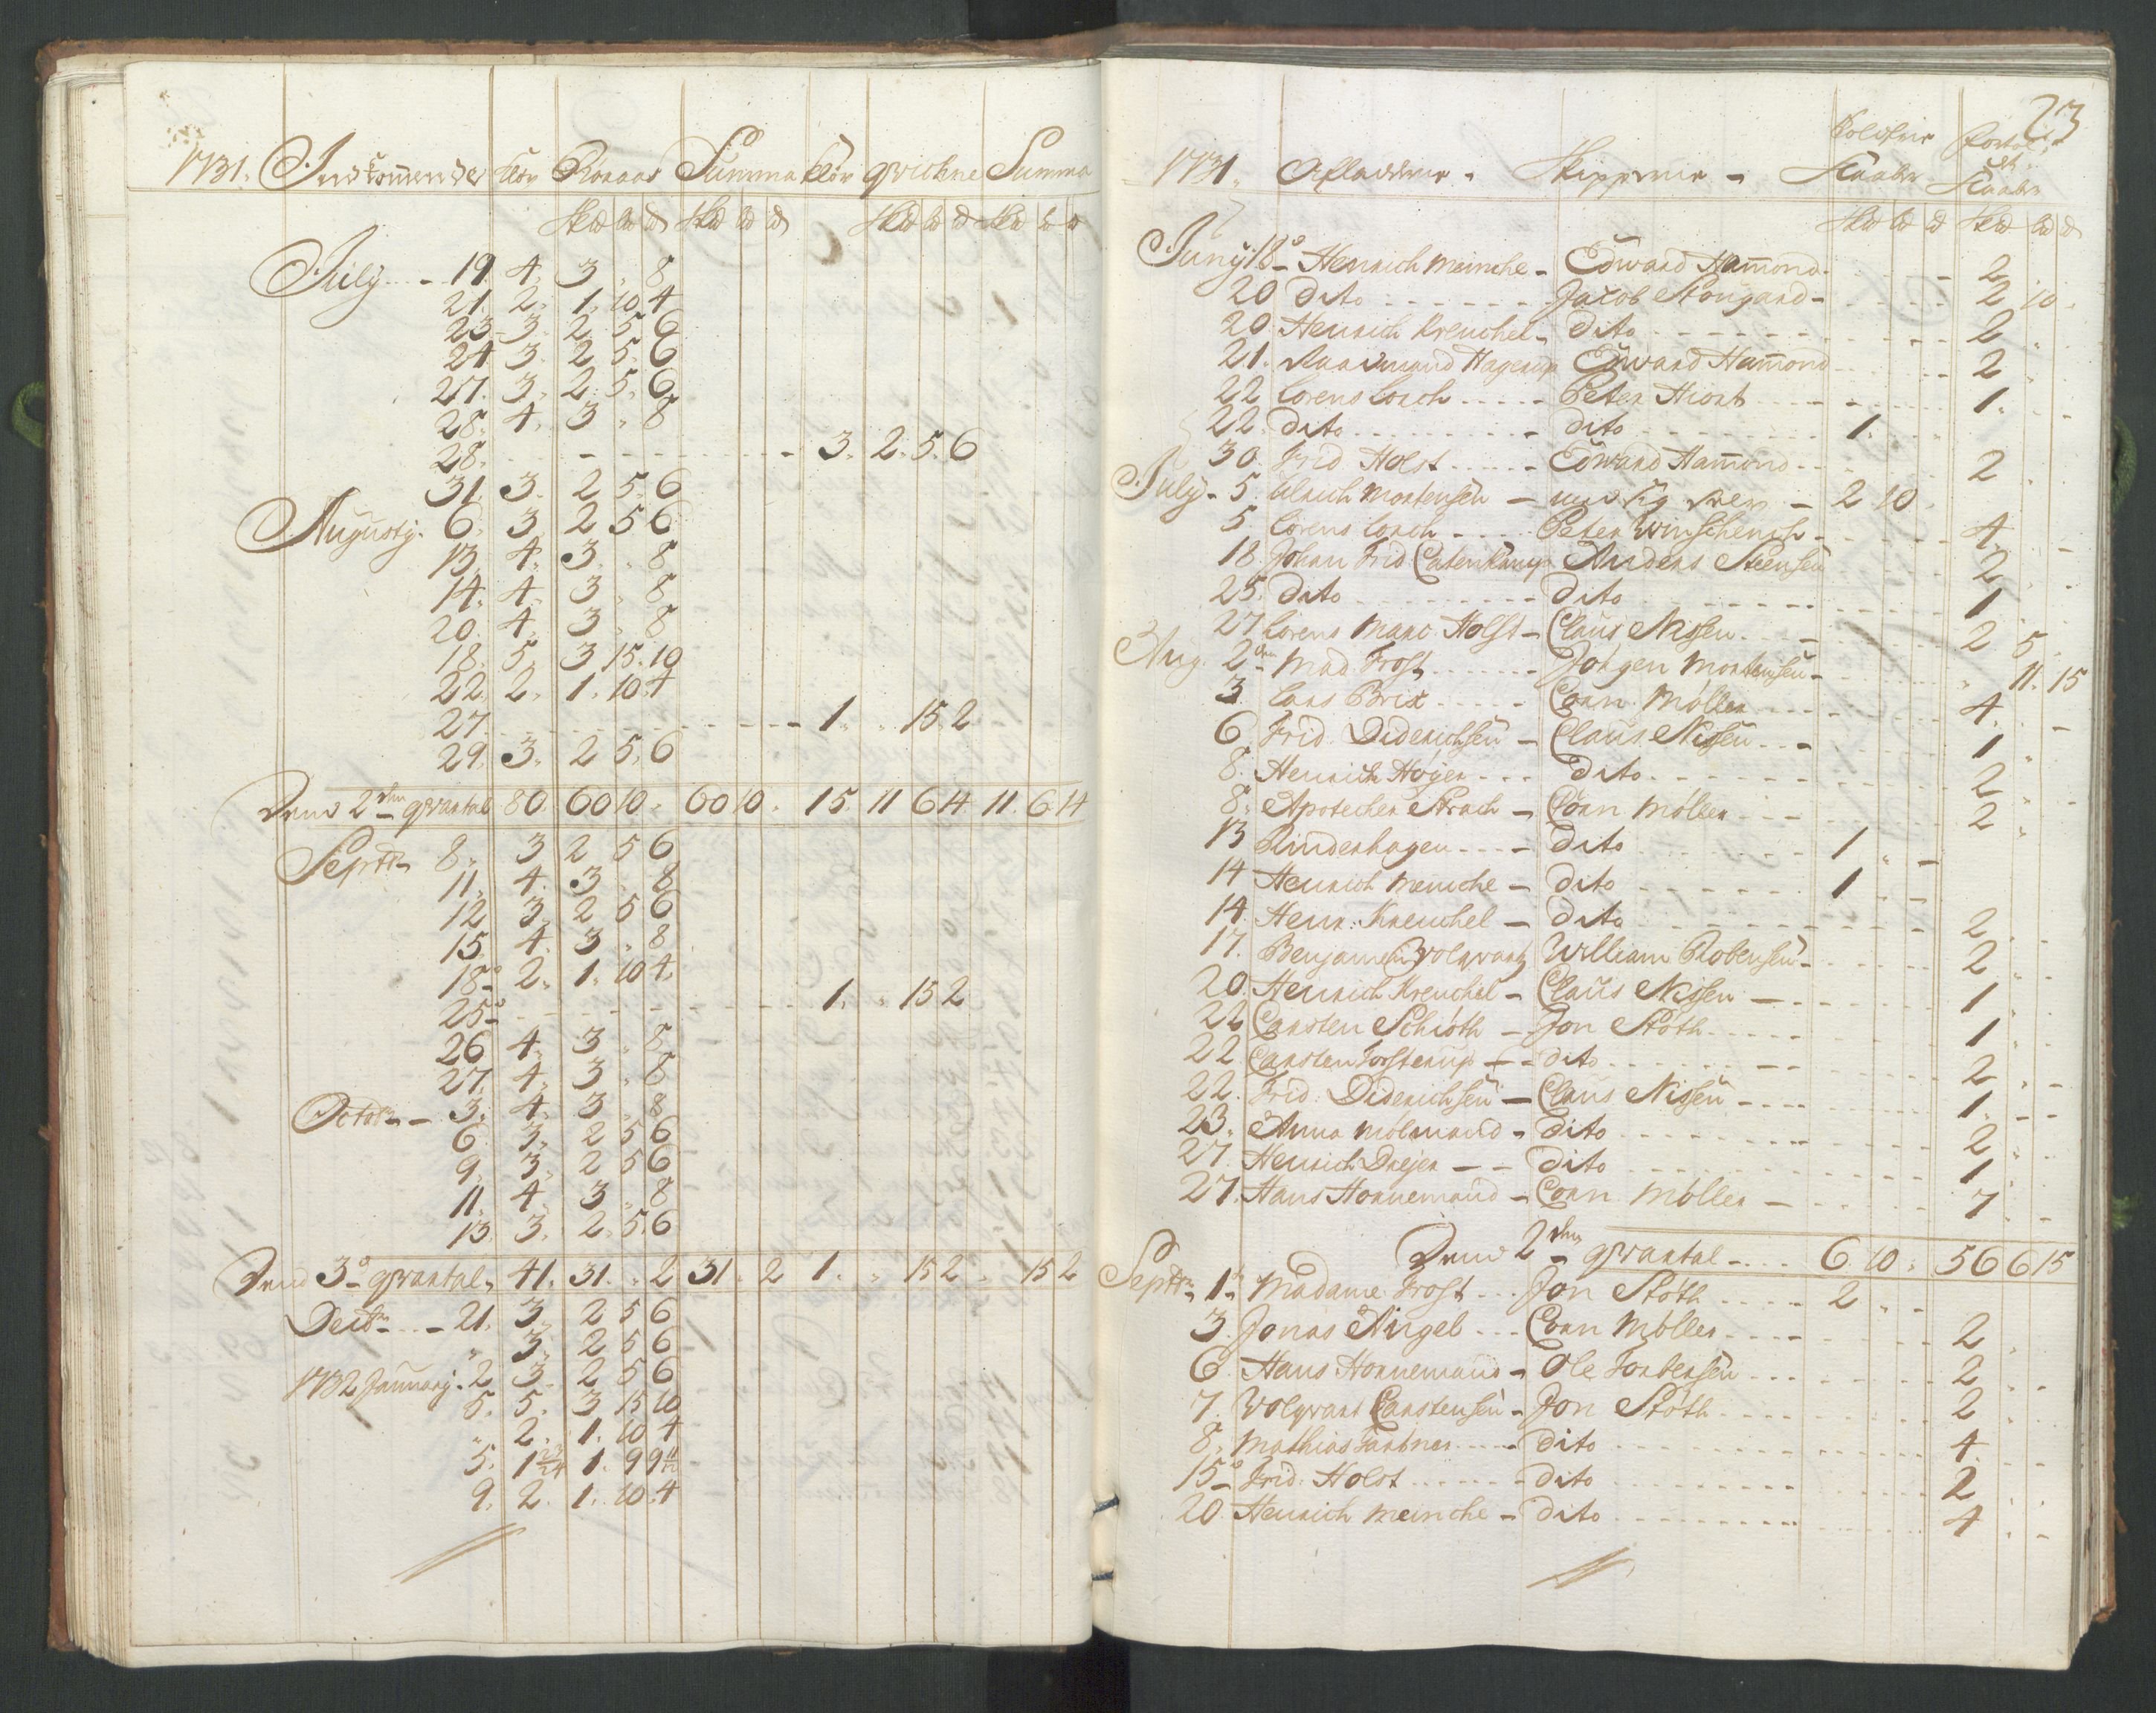 1731. Indkommende Kløv Rónaas Summa Kløv Summa
July 19. 4. 3 " 8
21. 2. 1. 10. 4
23. 3. 2. 5. 6
24 3. 2 5. 6
27. 3. 2. 5. 6
28. 4. 3 " 8
28. 3. 2. 5. 6
31. 3. 2 5. 6
Augusty. 6. 3 2 5 6
13. 4. 3. " 8
14. 4. 3 " 8
20. 4. 3 " 8
18. 5. 3 15. 10
22. 2. 1. 10. 4
27. 1. " 15. 2
29. 3. 2 5. 6
2den qvartal 80 60 10 " 60 10 " 15. 11 6 14 11. 6 14
Septr 8. 3 2 5 6
11. 4. 3 " 8
12 3. 2 5 6
15. 4. 3 " 8
18. 2. 1. 10 4.
25. 1. " 15 2
26 4. 3 " 8
27. 4. 3 " 8
Octobr 3. 4. 3 " 8
6. 3. 2 5 6
9. 3. 2 5 6
11. 4. 3 " 8
13. 3. 2. 5. 6
3 qvartal. 41. 31. " 2 31. " 2 1. " 15 2 " 15 2
Decbr 21. 3. 2 5 6
" 3. 2 5 6
1732 January. 2 3. 2 5 6
5. 5. 3 15 10
" 2. 1. 10 4
5. 1 23/24 1. 9 9 11/12
9. 2. 1. 10. 4
23
1731. Afladere. Skippere
Juny 18 Henrich Meinche Edward Hammond 2
20 dito Jacob Stougard 2 10
20. Henrich Kreuchel dito 2
21. Raadmand Hagerup Edward Hammond 2
22 Lorens Lorch Peter Hiort 1.
22. dito dito 1.
30. Frid Holst Edward Hammond 2
July 5. Ulrich Mortensen 2 10
5. Lorens Lorch Peter Winschench 4.
18. Johan Frid Catenkamp Anders Steensen 2
25. dito dito 1
27 Lorens Marc Holst Claus Nissen 2 5.
Aug. 2den Mad Frost Jørgen Mortensen " 11. 15
3. Lars Brix Corn Møller 4.
6 Frid. Diderichsen Claus Nissen 1
8. Henrich Høyer dito 2
8. Apothecker Strach Corn Møller 2
13 Rinderhagen dito 1
14 Henrich Meinche dito 1
14. Henr: Kreuchel dito 2
17. Benjamin Wolqvartz William Robensen 2
20. Henrich Kreuchel Claus Nissen 1
22 Carsten Schiøth Jon Støth 1
22 Carsten Forsterup dito 2
22. Frid. Diderichsen Claus Nissen 1.
23. Anna Mølmand dito 2
27. Henrich Dreyer dito 1
27. Hans Hornemand Corn Møller 7
2den qvartal 6. 10. 56 6 15
Septr 1 Madame Frost Jon Støth 2
3. Jonas Angel Corn Møller 2
6. Hans Hornemand Ole Torbersen 2
7. Wolqvart Carstensen Jon Støth 2
8. Mathias Tautner dito 4.
15 Frid. Holst dito 2
20. Henrich Meinche dito 4